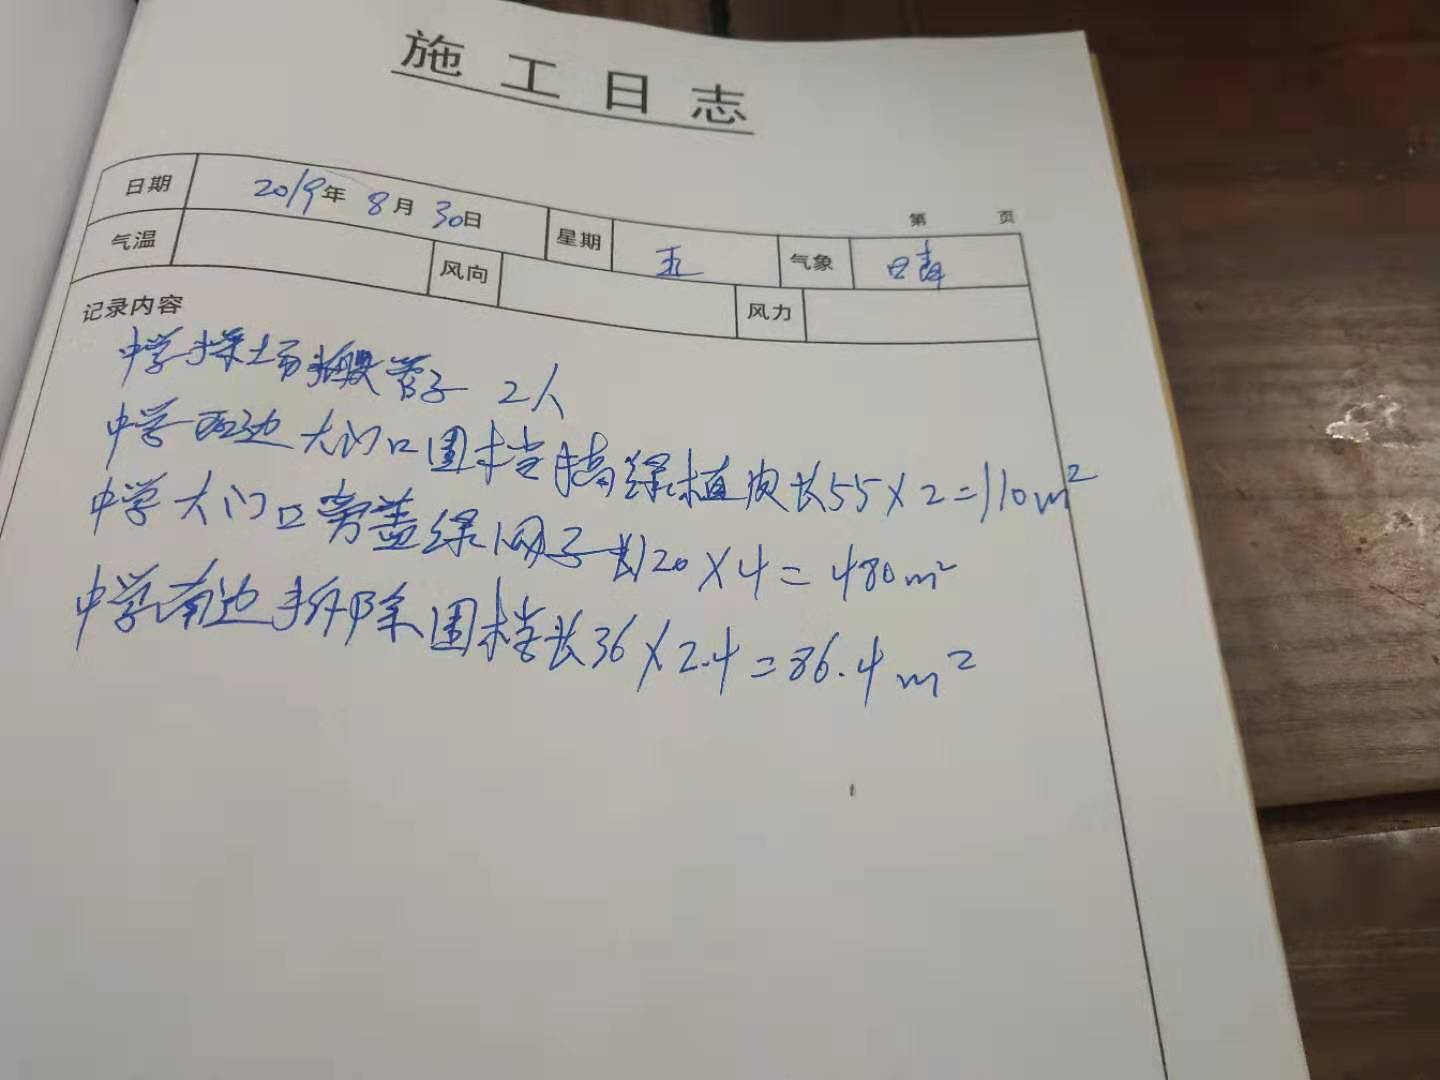 施工日志
第 页
日期 2019年 8月 30日 星期 五 气象 晴
气温 风向 风力
记录内容
中学操场搬管子 2人
中学西边大门口围档搞绿植皮长55×2=110m²
中学大门口旁盖绿网子长120×4=480m²
中学南边拆除围档长36×2.4=86.4m²